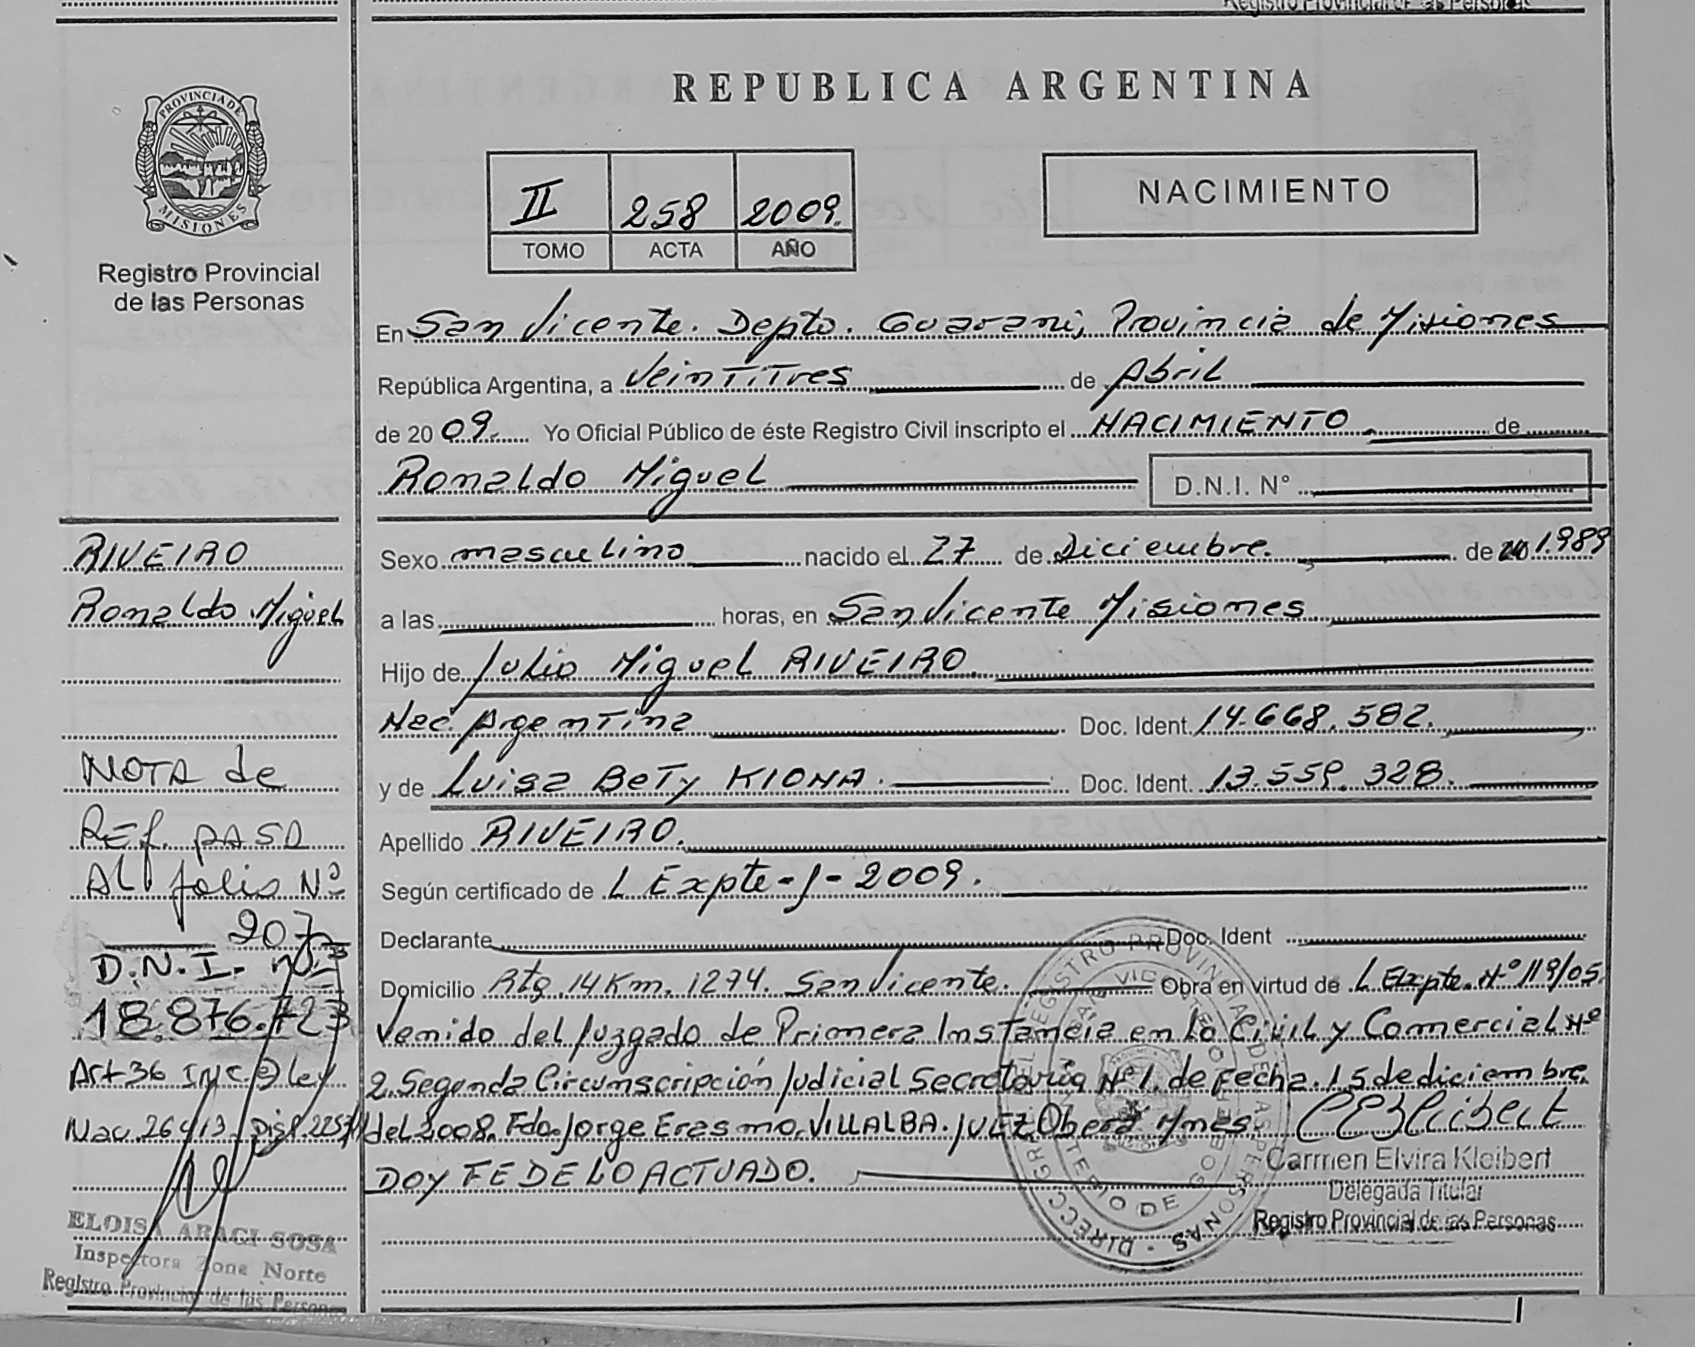 Registro Provincial de las Personas
REPUBLICA ARGENTINA
PROVINCIA DE
MISIONES
Registro Provincial
de las Personas
II 258 2009.
TOMO ACTA AÑO
NACIMIENTO
En San Vicente. Depto. Guarani, Provincia de Misiones
República Argentina, a VeinTiTres de Abril
de 20 09. Yo Oficial Público de éste Registro Civil inscripto el NACIMIENTO de
Ronaldo Miguel
D.N.I. N°
Sexo masculino nacido el 27 de Diciembre. de 1.989
a las horas, en San Vicente Misiones
Hijo de Julio Miguel RIVEIRO.
Nac. ArgenTina Doc. Ident. 14.668.582.
y de Luisa BeTy KIONA. Doc. Ident. 13.559.328.
Apellido RIVEIRO.
Según certificado de L Expte-J-2009.
Declarante Doc. Ident
Domicilio Rta 14 Km. 1274. San Vicente. Obra en virtud de L Expte. N° 119/05.
Venido del Juzgado de Primera Instancia en lo Civil y Comercial N°
2. Segunda Circunscripción Judicial Secretaria N° 1. de Fecha. 15 de diciembre.
del 2008. Fdo. Jorge Erasmo. VILLALBA. JUEZ Obera Mnes.
DOY FE DE LO ACTUADO.
Carmen Elvira Kleibert
Delegada Titular
Registro Provincial de las Personas
RIVEIRO
Ronaldo Miguel
NOTA de
REf. PASO
AL folio N°
207
D.N.I. n°
18.876.723
Art 36 INC. Ley
Nac. 26413
ELOISA ARAGI SOSA
Inspectora Zona Norte
Registro Provincial de las Personas